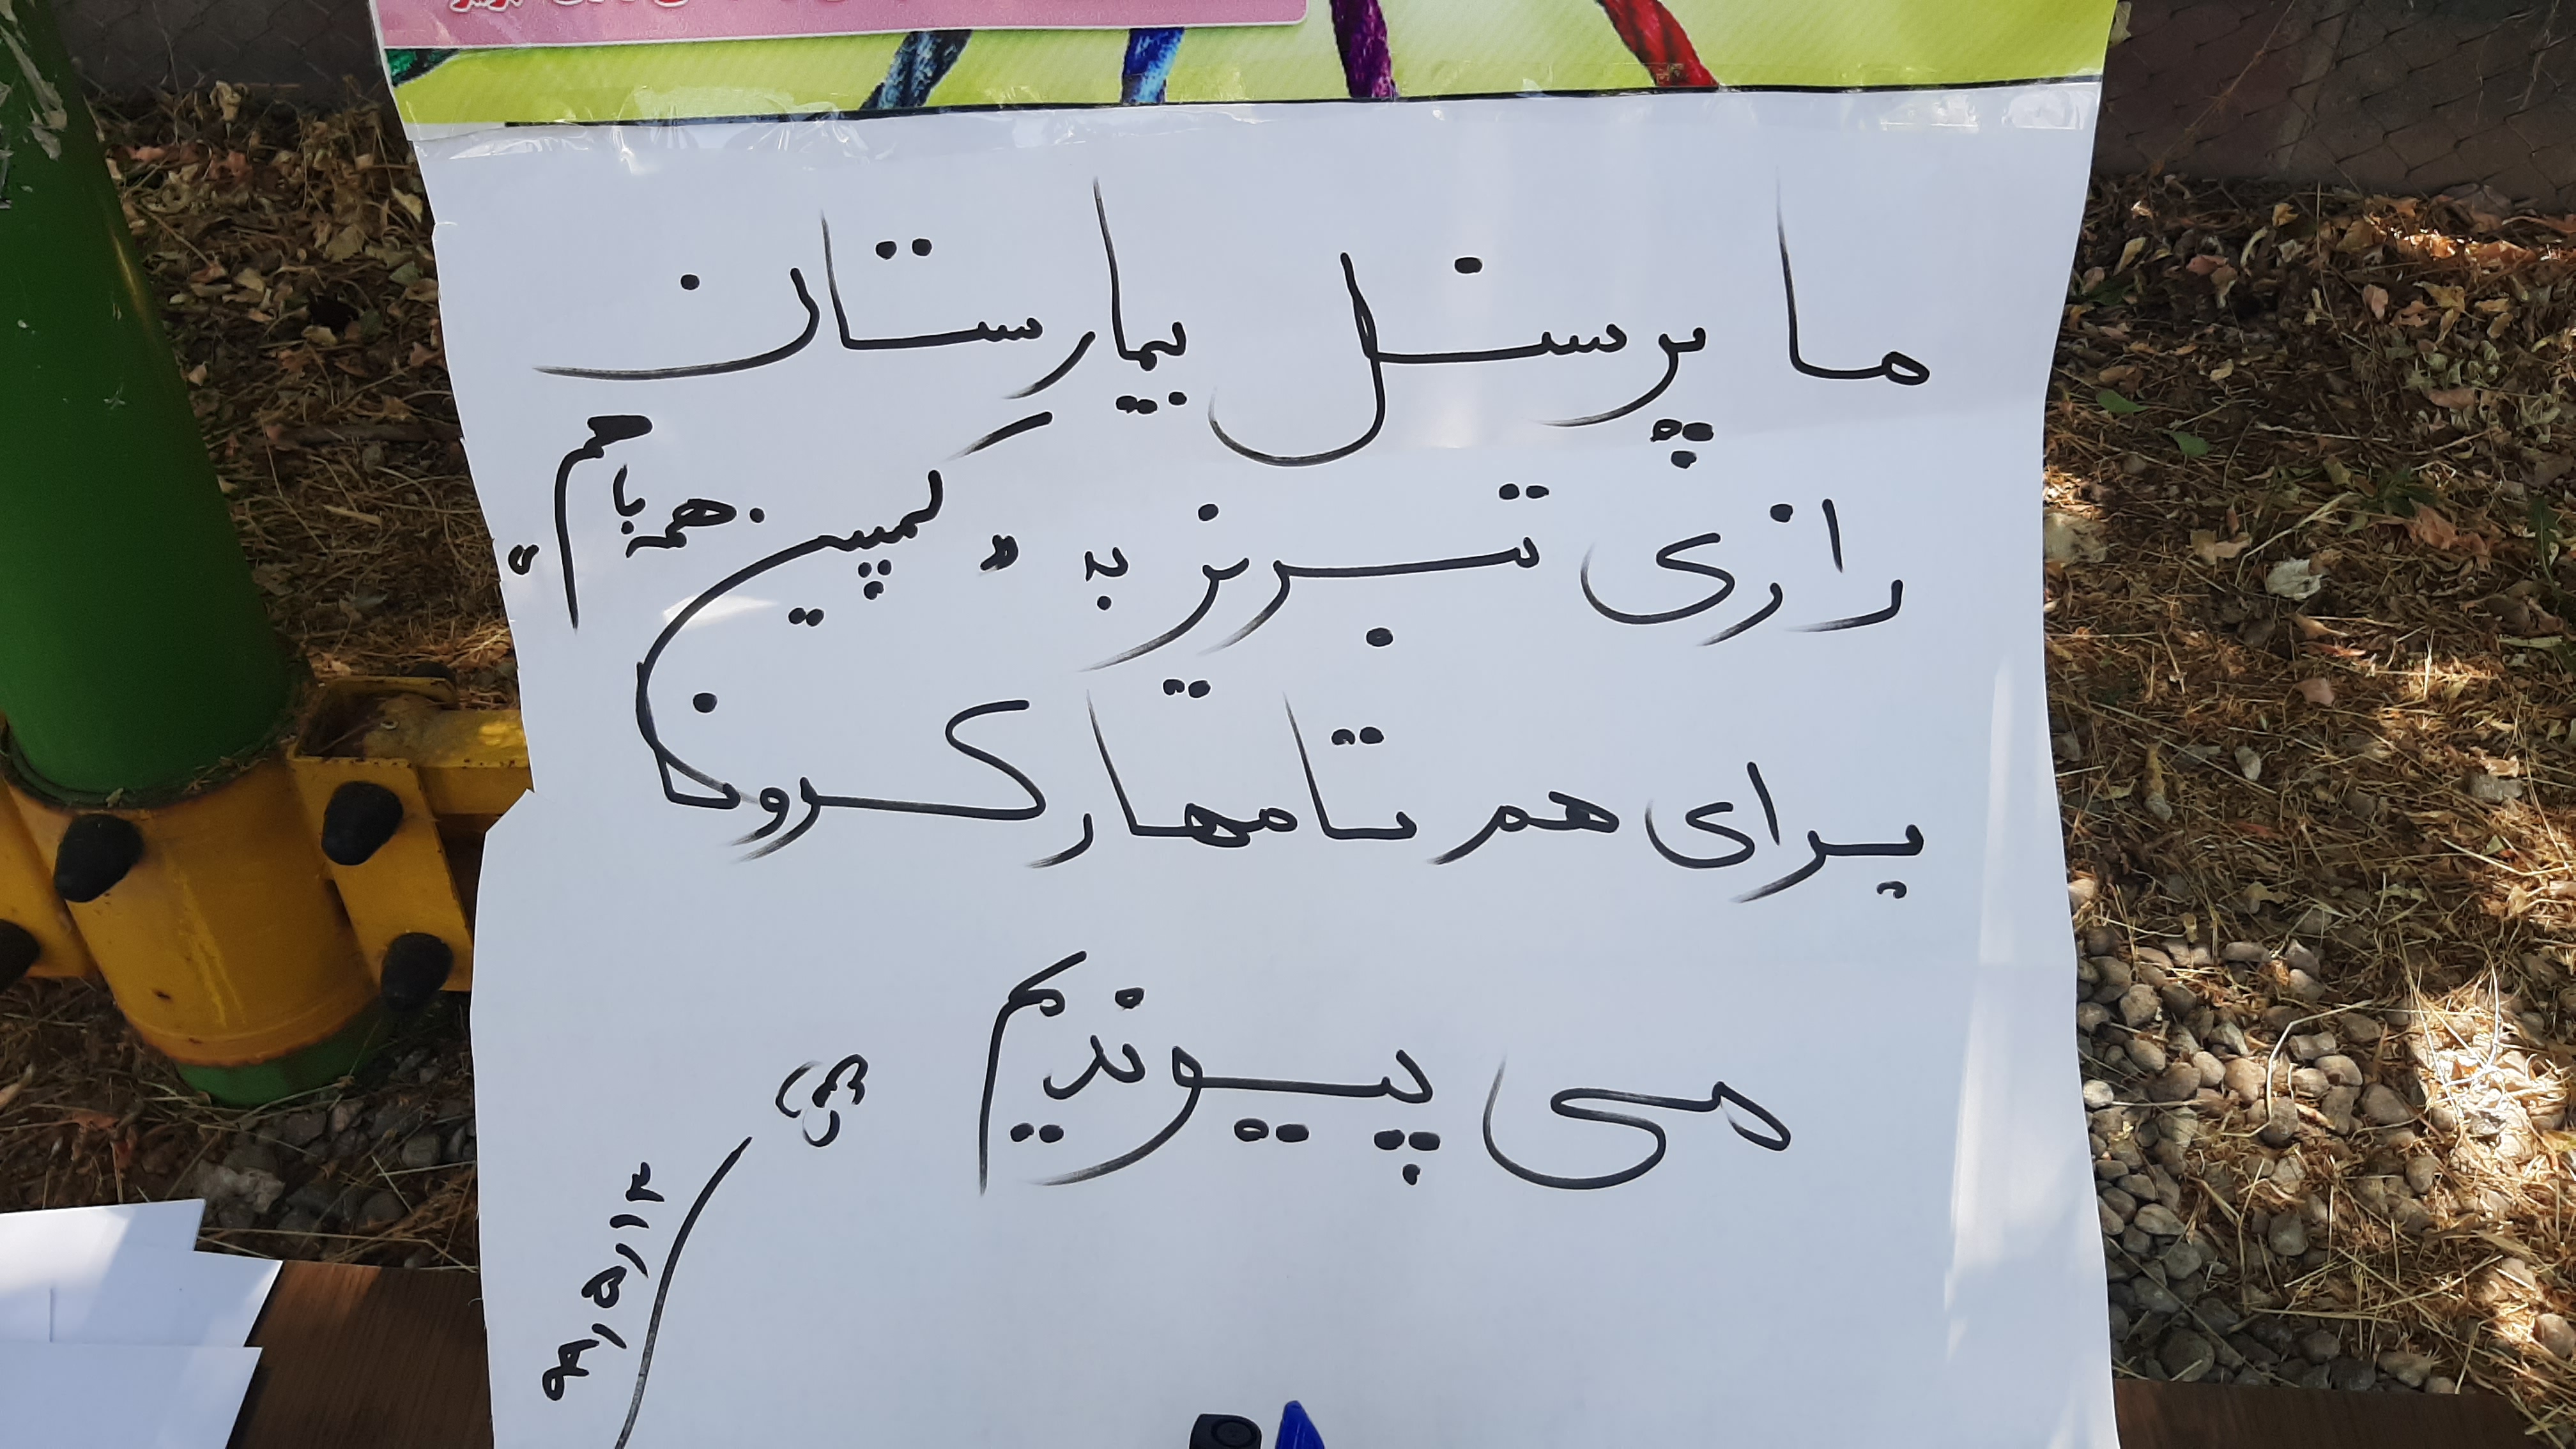 ما پرسنل بیمارستان
رازی تبریز به "کمپین همه باهم"
برای هم تا مهار کرونا
می پیوندیم
۹۹/۵/۱۲